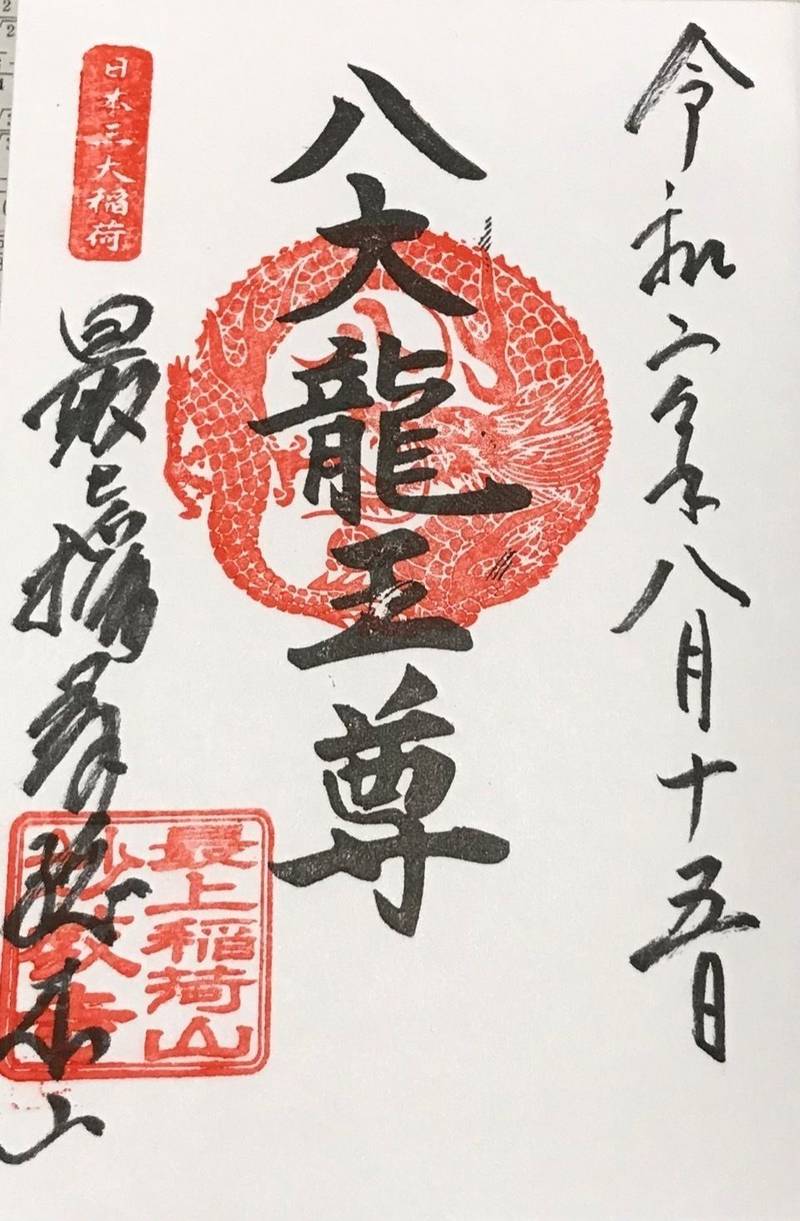 令和二年八月十五日
八大龍王尊
日本三大稲荷
最上稲荷
総本山
最上稲荷山
妙教寺